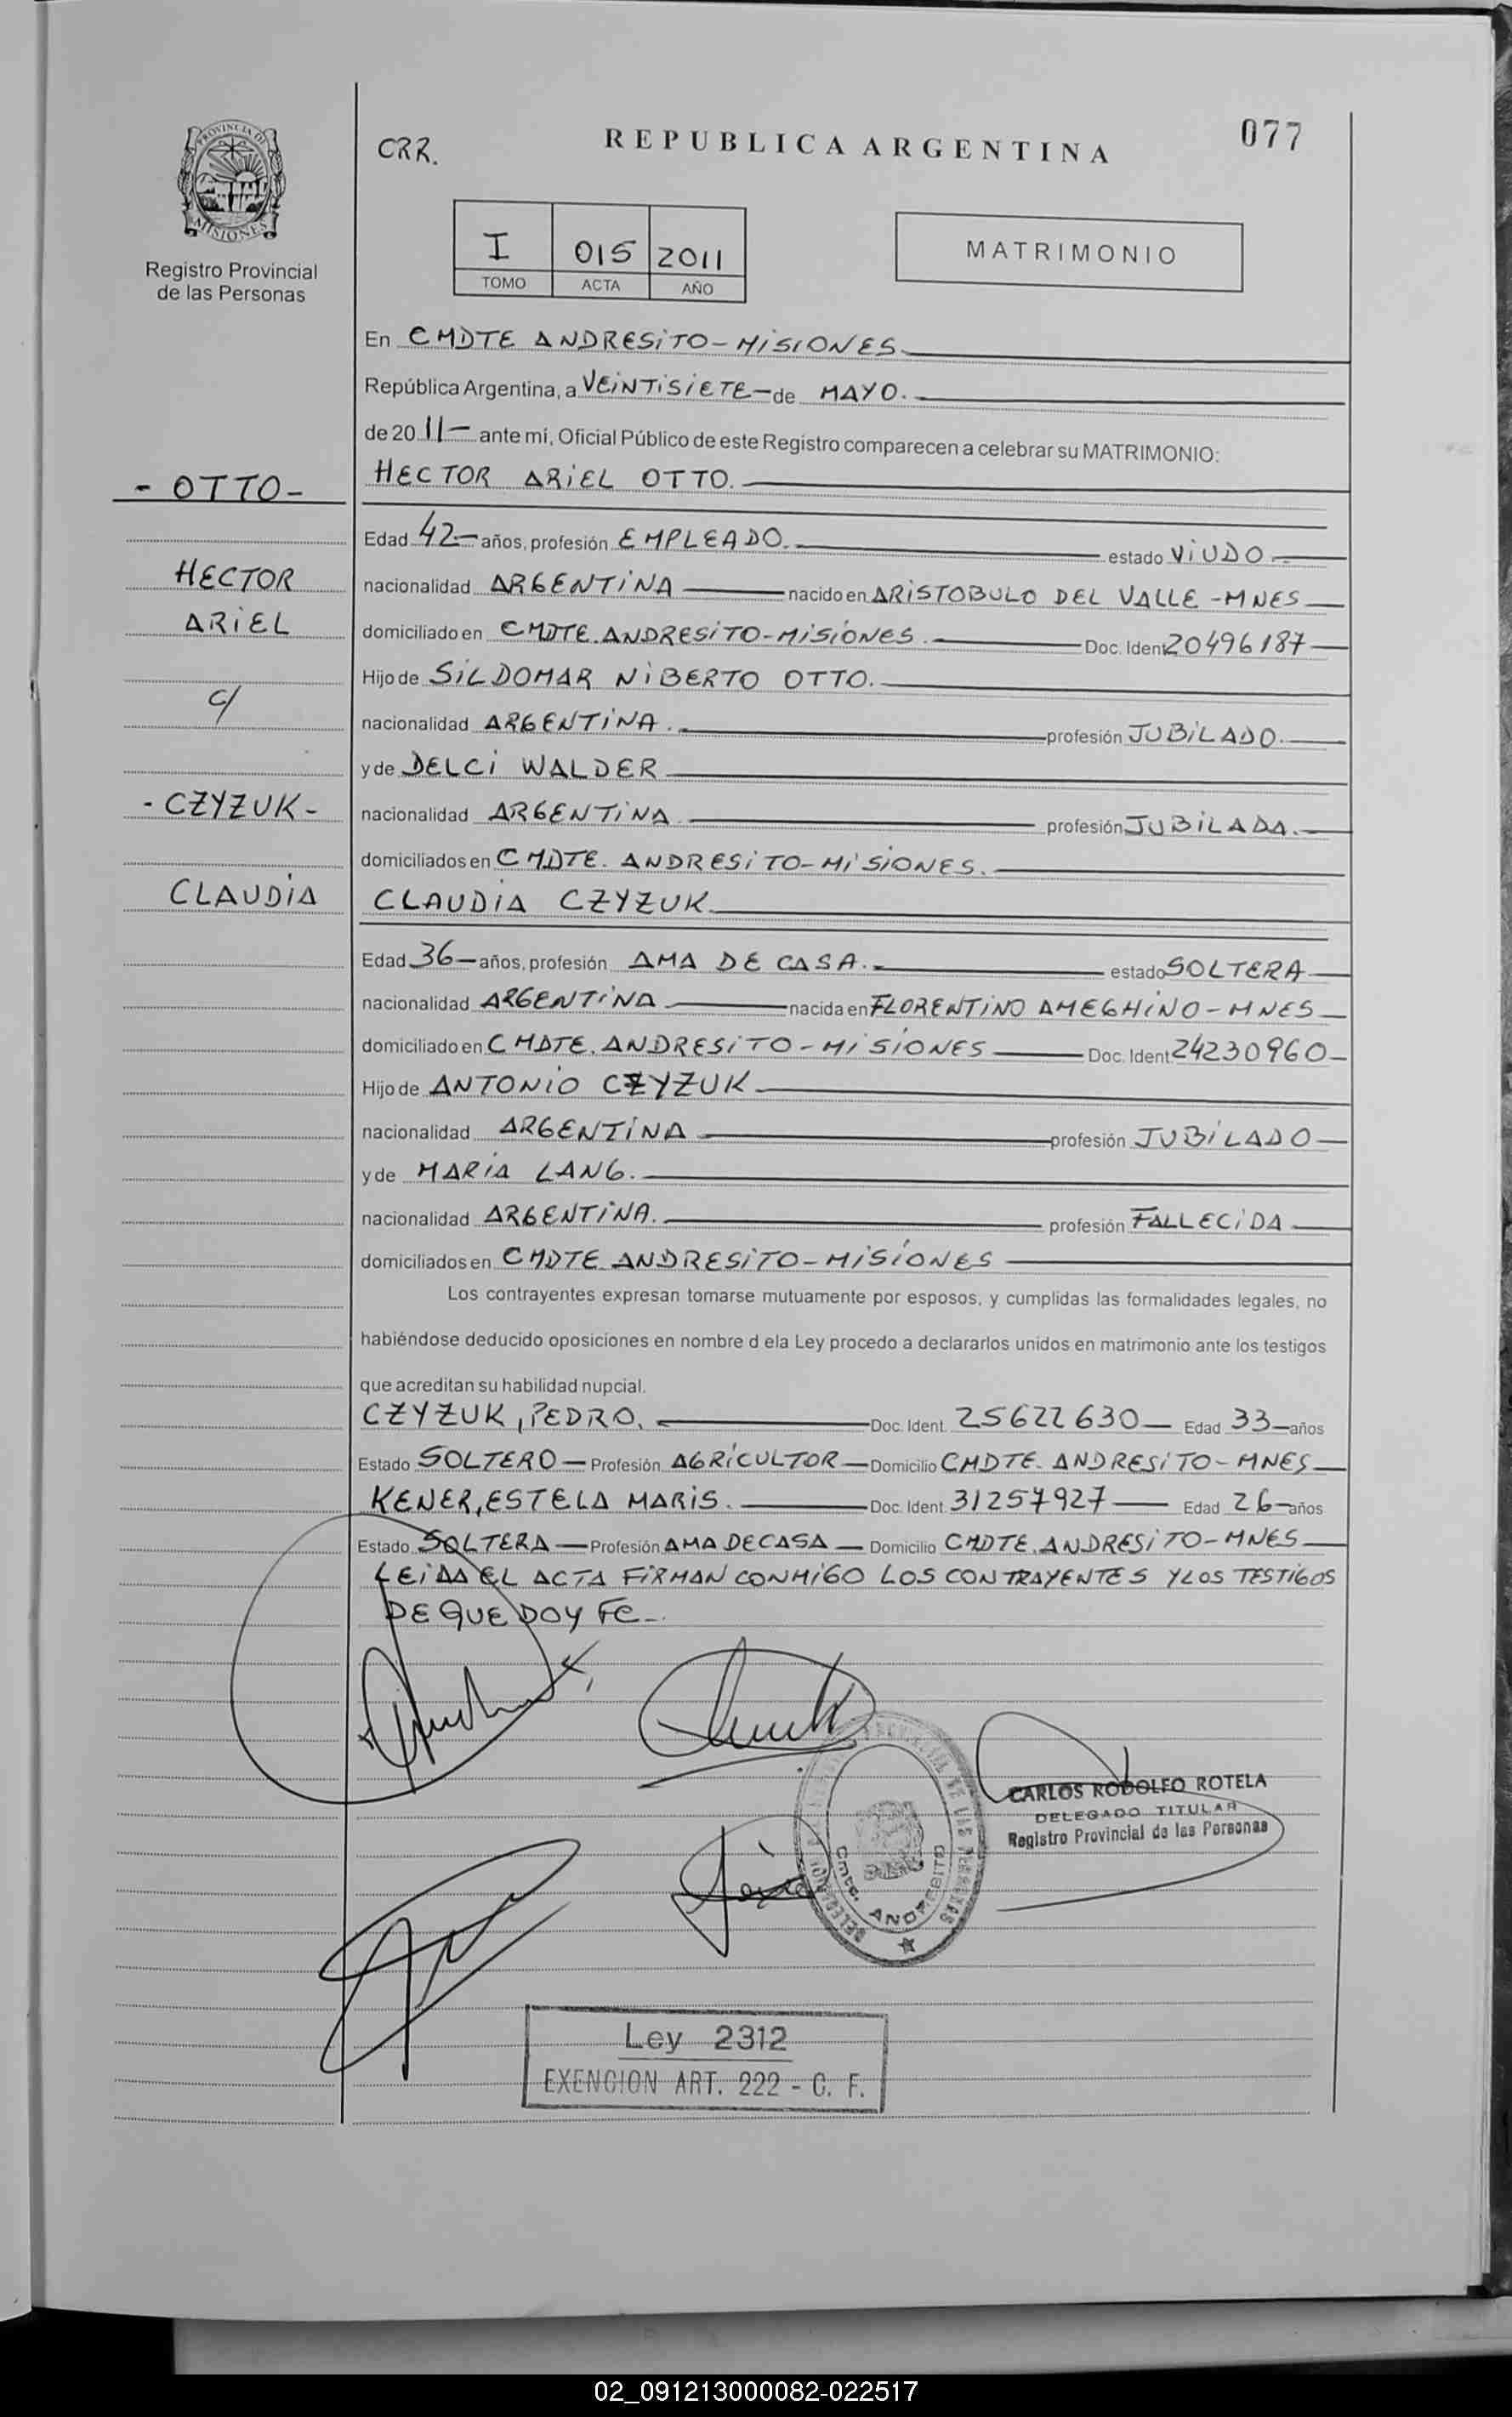 PROVINCIA DE
MISIONES
Registro Provincial
de las Personas
CRR.
REPUBLICA ARGENTINA
077
I 015 2011
TOMO ACTA AÑO
MATRIMONIO
En CMDTE ANDRESITO-MISIONES
República Argentina, a VEINTISIETE- de MAYO.
de 20 11- ante mí, Oficial Público de este Registro comparecen a celebrar su MATRIMONIO:
- OTTO-
HECTOR ARIEL OTTO.
Edad 42- años, profesión EMPLEADO. estado VIUDO.-
HECTOR
nacionalidad ARGENTINA nacido en ARISTOBULO DEL VALLE-MNES
ARIEL
domiciliado en CMDTE. ANDRESITO-MISIONES. Doc. Ident 20496187
Hijo de SILDOMAR NIBERTO OTTO.
C/
nacionalidad ARGENTINA. profesión JUBILADO.
y de DELCI WALDER
- CZYZUK-
nacionalidad ARGENTINA. profesión JUBILADA.
domiciliados en CMDTE. ANDRESITO-MISIONES.
CLAUDIA
CLAUDIA CZYZUK.
Edad 36- años, profesión AMA DE CASA.- estado SOLTERA
nacionalidad ARGENTINA nacida en FLORENTINO AMEGHINO-MNES
domiciliado en CMDTE. ANDRESITO-MISIONES Doc. Ident. 24230960-
Hijo de ANTONIO CZYZUK
nacionalidad ARGENTINA profesión JUBILADO
y de MARIA LANG.
nacionalidad ARGENTINA. profesión FALLECIDA
domiciliados en CMDTE ANDRESITO-MISIONES
Los contrayentes expresan tomarse mutuamente por esposos, y cumplidas las formalidades legales, no
habiéndose deducido oposiciones en nombre d ela Ley procedo a declararlos unidos en matrimonio ante los testigos
que acreditan su habilidad nupcial.
CZYZUK, PEDRO. Doc. Ident. 25622630- Edad 33- años
Estado SOLTERO- Profesión AGRICULTOR- Domicilio CMDTE. ANDRESITO-MNES
KENER, ESTELA MARIS. Doc. Ident. 31257927- Edad 26- años
Estado SOLTERA- Profesión AMA DE CASA- Domicilio CMDTE. ANDRESITO-MNES
LEIDA EL ACTA FIRMAN CONMIGO LOS CONTRAYENTES Y LOS TESTIGOS
DE QUE DOY FE-.
CARLOS RODOLFO ROTELA
DELEGADO TITULAR
Registro Provincial de las Personas
Cmte. ANDRESITO
Ley 2312
EXENCION ART. 222 - C. F.
02_091213000082-022517